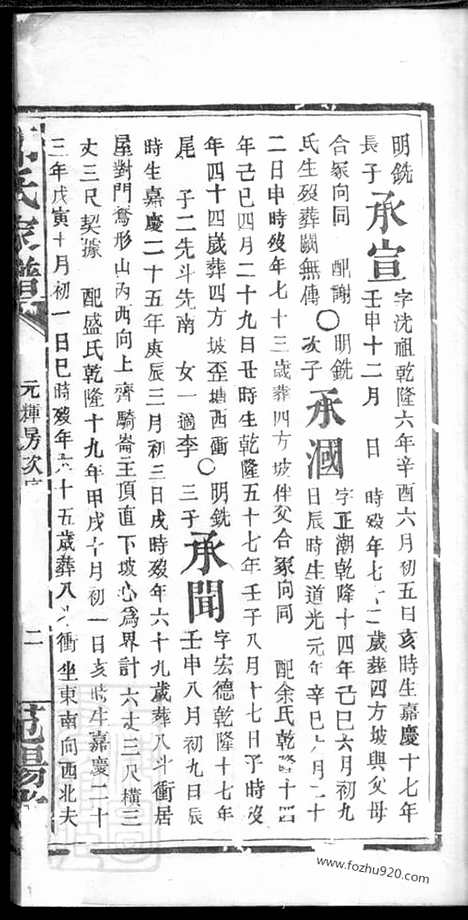 明銑
長子 承宣 字洗祖乾隆六年辛酉六月初五日亥時生嘉慶十七年
壬申十二月 日 時歿年七十二歲葬四方坡與父母
合冢向同 配謝氏生歿葬闕無傳 〇 明銑次子 承溷 字正潮乾隆十四年己巳六月初九
日辰時生道光元年辛巳 月二十
二日申時歿年七十三歲葬四方坡伴父合冢向同 配余氏乾隆十四
年己巳四月二十九日丑時生乾隆五十七年壬子八月十七日子時沒
年四十四歲葬四方坡歪塘西衝 〇 明銑三子 承聞 字宏德乾隆十七年
壬申八月初九日辰
尾 子二先斗先南 女一適李
時生嘉慶二十五年庚辰三月初三日戌時歿年六十九歲葬八斗衝居
屋對門 形山內西向上齊騎崙王頂直下坡心為界計六丈三尺橫三
丈三尺契據 配盛氏乾隆十九年甲戌十月初一日亥時生嘉慶二十
三年戊寅十月初一日巳時歿年六十五歲葬八斗衝坐東南向西北夫
氏家譜
元輝房次
二
范陽
www.fozhu920.com